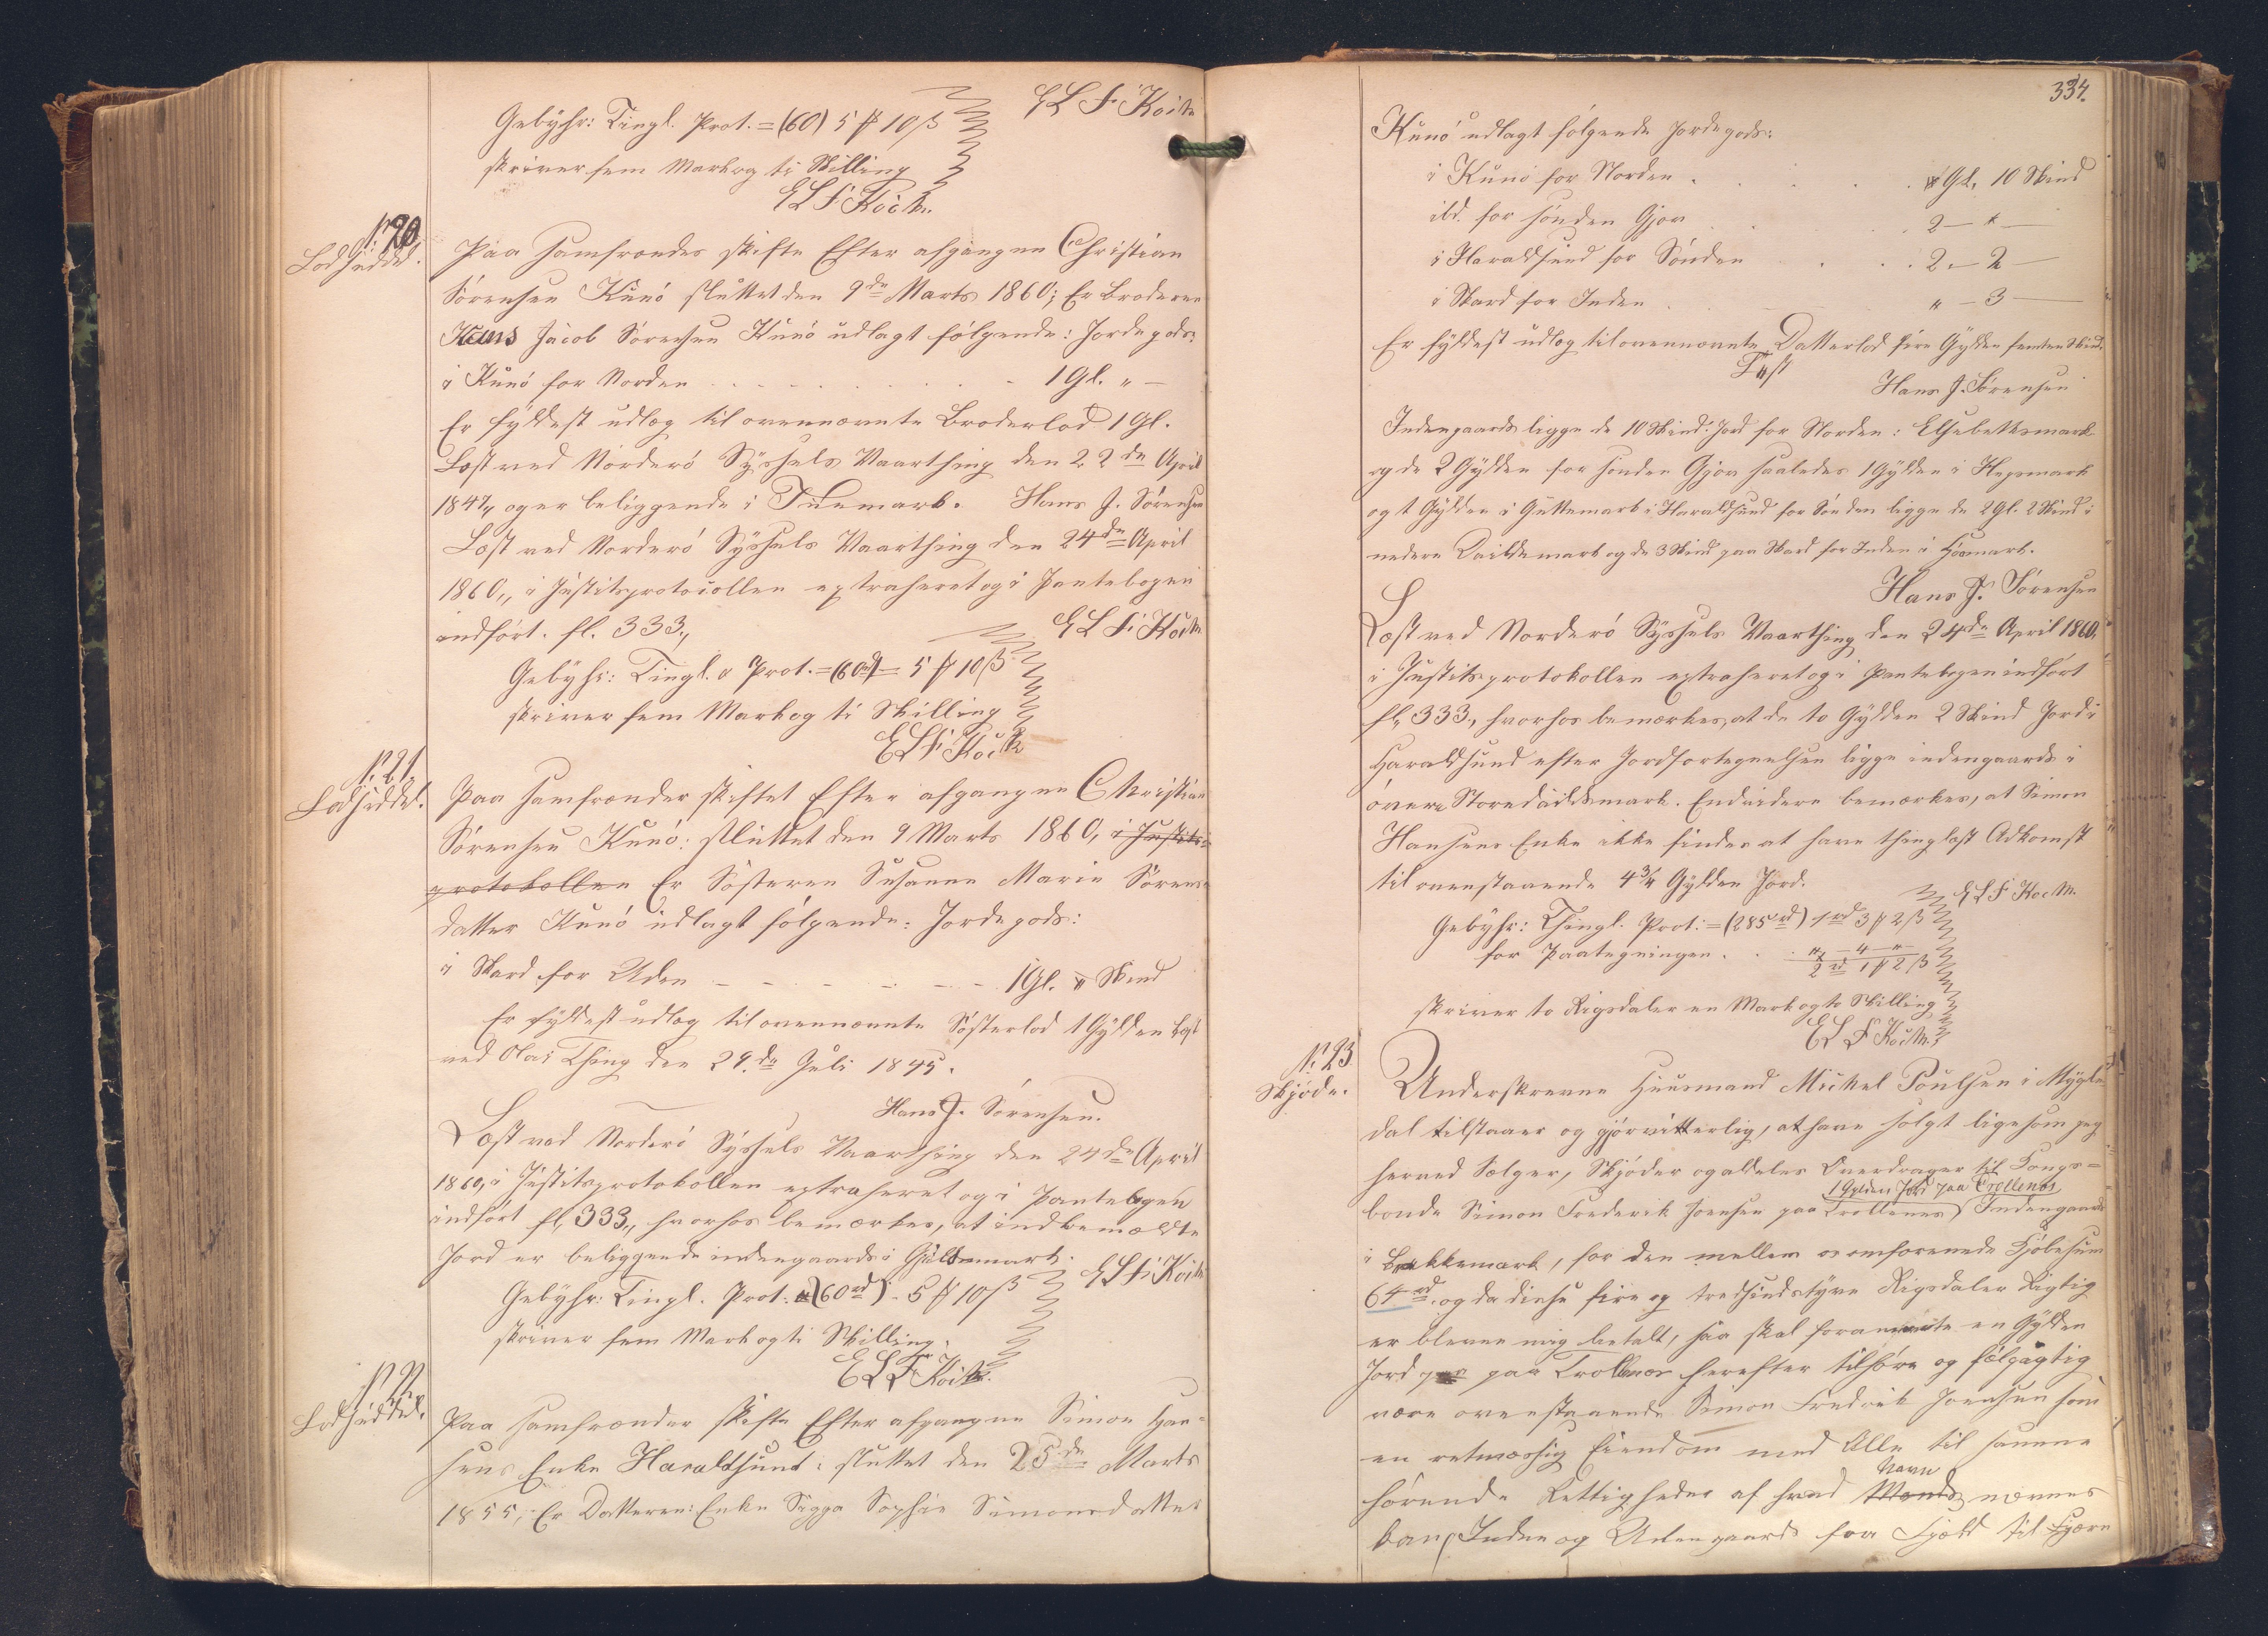 E L F Koch
Gebyhr: Tingl. Prot. = (60) 5 ß 10 ß
skriver fem Mark og ti Skilling
E L F Koch.
N: 20.
Lodseddel.
Paa Samfrændes skifte Efter afgangen Christian
Sörensen Kunö sluttet den 9de Marts 1860; Er Broderen
Hans Jacob Sörensen Kunö udlagt fölgende: Jordegods:
i Kunö for Norden . . . . . . . . 1 Gl. " —
Er fyldest udlæg til ovennævnte Broderlod 1 Gl.
Læst ved Norderö Syssels Vaarthing den 22de April
1847, og er beliggende i Tunemark. Hans J. Sörensen
Læst ved Norderö Syssels Vaarthing den 24de April
1860,, i Justitsprotocollen extraheret og i Pantebogen
indfört. fl. 333.,
E L F Koch
Gebyhr: Tingl. o Prot. = (60rd) = 5 ß 10 ß
skriver fem Mark og ti Skilling
E L F Koch
N. 21.
Lodseddel.
Paa Samfrænder skiftet Efter afgangne Christian
Sörensen Kunö: sluttet den 9 Marts 1860, i Justits-
protokollen Er Sösteren Susanne Marie Sörens-
datter Kunö udlagt fölgende: Jordegods:
i Skard for Uden — - - - - - - - 1 Gl. " Skind
Er fyldest udlæg til ovennævnte Sösterlod 1 Gylden Læst
ved Olai Thing den 29.de Juli 1845.
Hans J. Sörensen.
Læst ved Norderö Syssels Vaarthing den 24de April
1860, i Justitsprotokollen extraheret og i Pantebogen
indfört fl, 333,, hvorhos bemærkes, at indbemældte
Jord er beliggende indengaards i Gullemark.
E L F Koch
Gebyhr: Tingl. Prot: (60rd) - 5 ß 10 ß
skriver fem Mark og ti Skilling.
E L F Koch.
N. 22.
Lodseddel.
Paa Samfrænder skifte Efter afgangne Simon Han-
sens Enke Haraldsund: sluttet den 25de Marts
1855, Er Datteren: Enke Sigga Sophie Simonsdatter
334.
Kunö udlagt fölgende Jordegods:
i Kunö for Norden . . . . . " Gl. 10 Skind
ibd. for sönden Gjov . . . 2 — " —
i Haraldsund for Sönden . . . 2 — 2 —
i Skard for Inden . . " — 3 —
Er fyldest udlæg til ovennævnte Datterlod fire Gylden femten Skind.
Læst
Hans J. Sörensen
Indengaards ligge de 10 Skind: Jord for Norden: Elsebethsmark
og de 2 Gylden for sönden Gjov saaledes 1 Gylden i Heysmark
og 1 Gylden i Guttemark i Haraldsund for Sönden ligge de 2 Gl. 2 Skind i
nedere Dailsmark og de 3 Skind paa Skard for Inden i Höymark.
Hans J. Sörensen
Læst ved Norderö Syssels Vaarthing den 24de April 1860,
i Justitsprotokollen extraheret og i Pantebogen indfört
fl, 333., hvorhos bemærkes, at de to Gylden 2 Skind Jord i
Haraldsund efter Jordfortegnelsen ligge indengaards i
övere Storedailsmark. Endvidere bemærkes, at Simon
Hansens Enke ikke findes at have thinglæst Adkomst
til ovenstaaende 4 3/4 Gylden Jord.
E L F Koch.
Gebyhr: Thingl. Prot: = (285rd) 1rd 3 ß 2 ß
for Paategningen . . . " — 4 — "
2rd 1 ß 2 ß
skriver to Rigsdaler en Mark og to Skilling
E L F Koch.
N. 23.
Skjöde.
Underskrevne Huusmand Michel Poulsen i Mygle-
dal tilstaaer og gjör vitterlig, at have solgt ligesom jeg
herved Sælger, Skjöder og aldeles Overdrager til Kongs-
bonde Simon Frederik Joensen paa Trollenes 1 Gylden Jord paa Trollenæs Indengaards
i Bakkemark, for den mellem os omforenede Kjöbesum
64rd. og da disse fire og tredsindstyve Rigsdaler Rigtig
er blevne mig betalt, saa skal forannævnte en Gylden
Jord paa Trollenæs herefter tilhöre og fölgagtig
være ovenstaaende Simon Fredrik Joensen som
en retmæssig Eiendom med Alle til samme
hörende Rettigheder af hvad Mends Navn nævnes
kan, Inden og Udengaards fra Fjeld til Fjære